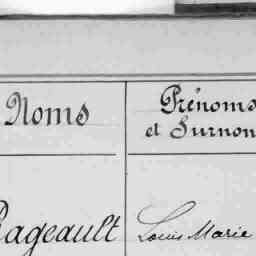 Noms
Prénoms
et Surnoms
Rageault Louis Marie